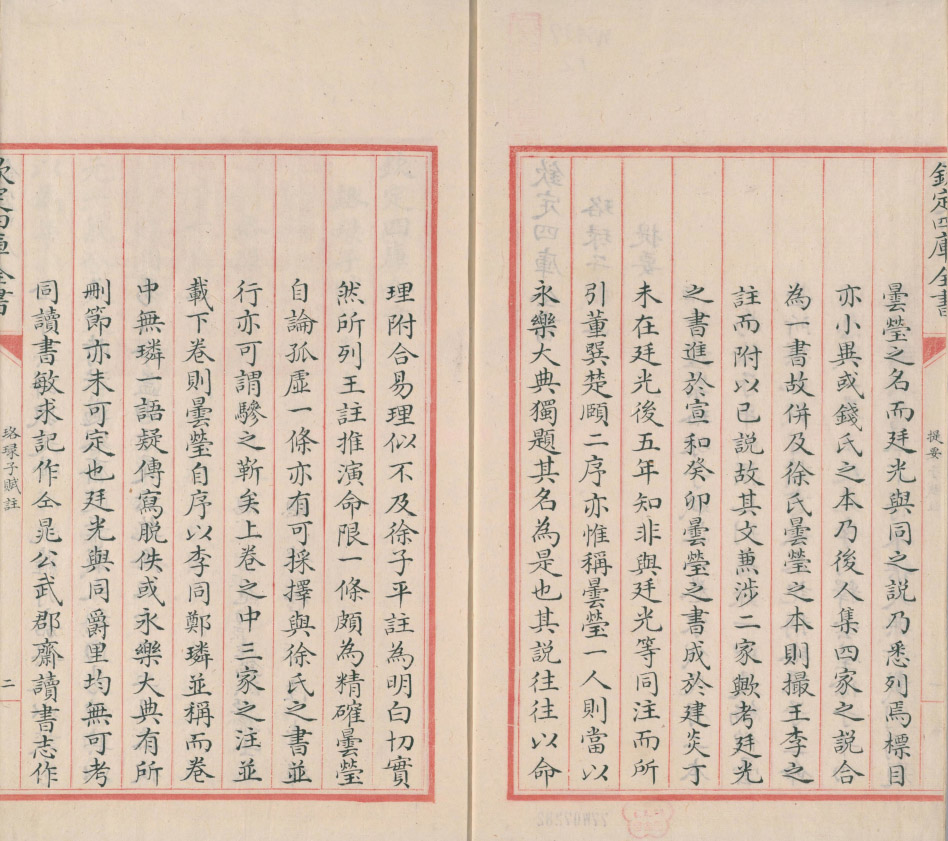 欽定四庫全書
提要
曇瑩之名而廷光與同之説乃悉列焉標目
亦小異或錢氏之本乃後人集四家之説合
為一書故併及徐氏曇瑩之本則撮王李之
註而附以已説故其文兼涉二家歟考廷光
之書進於宣和癸卯曇瑩之書成於建炎丁
未在廷光後五年知非與廷光等同注而所
引董巽楚頤二序亦惟稱曇瑩一人則當以
永樂大典獨題其名為是也其説往往以命
理附合易理似不及徐子平註為明白切實
然所列王註推演命限一條頗為精確曇瑩
自論孤虛一條亦有可採擇與徐氏之書並
行亦可謂驂之靳矣上卷之中三家之注並
載下卷則曇瑩自序以李同鄭璘並稱而卷
中無璘一語疑傳寫脱佚或永樂大典有所
刪節亦未可定也廷光與同爵里均無可考
同讀書敏求記作仝晁公武郡齋讀書志作
欽定四庫全書
珞琭子賦註
二